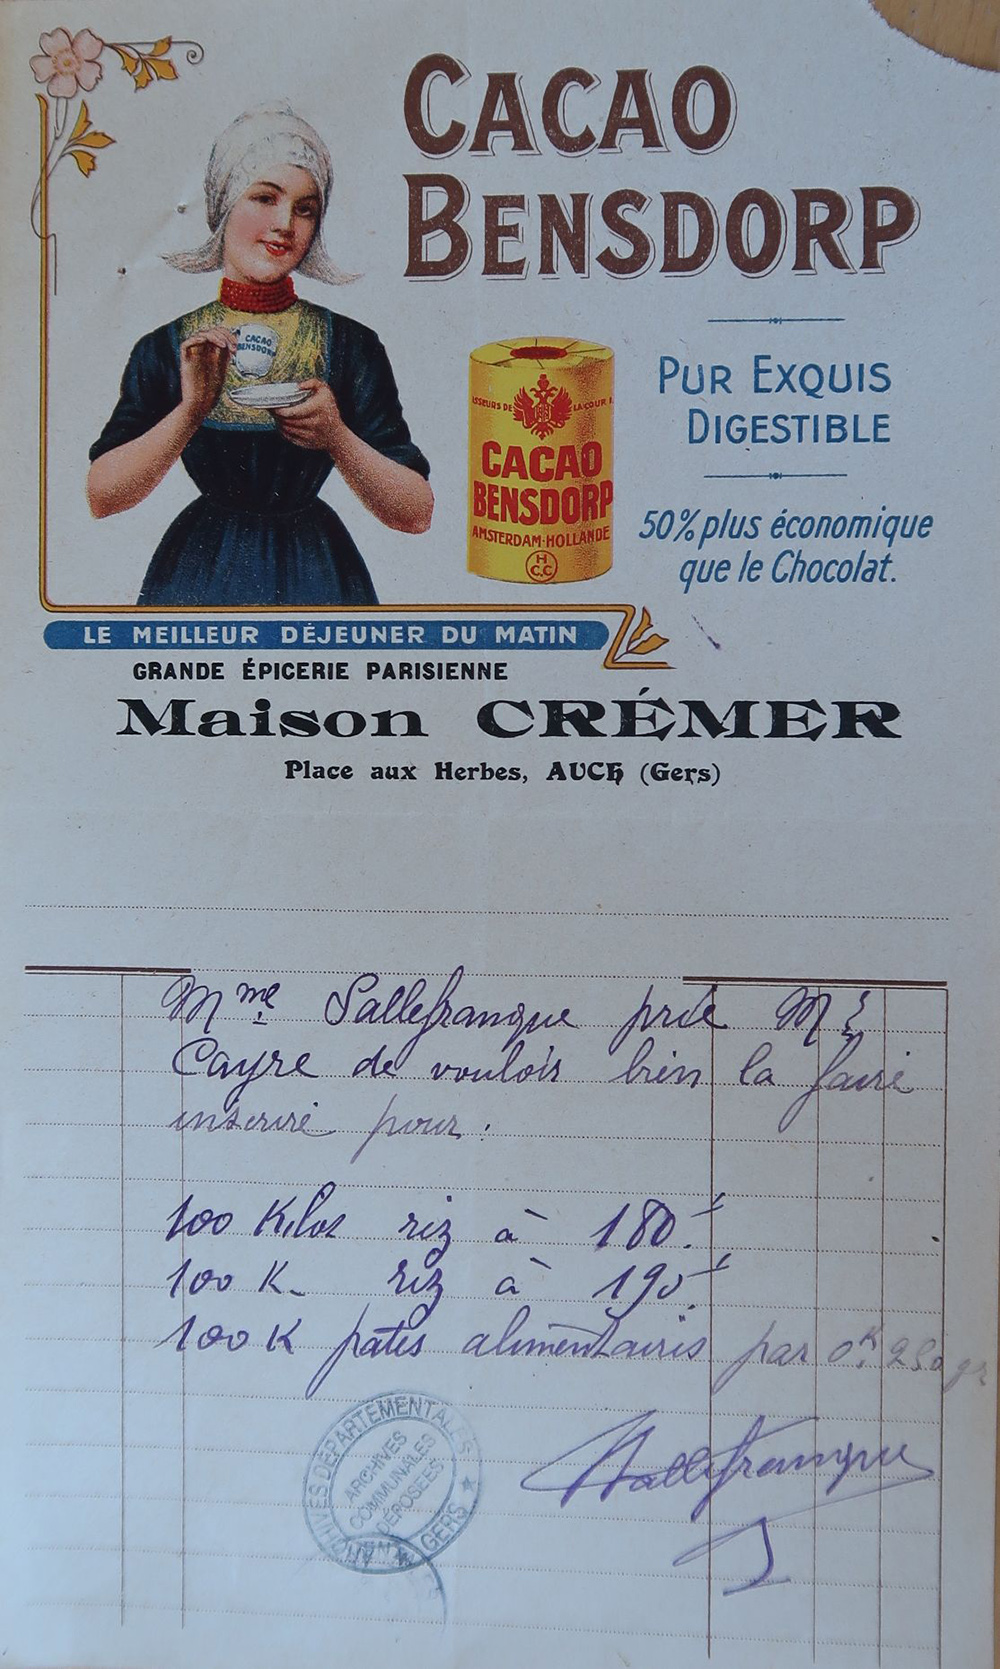 CACAO
BENSDORP
CACAO
BENSDORP
PUR EXQUIS
DIGESTIBLE
LA COUR
CACAO
BENSDORP
AMSTERDAM-HOLLANDE
H
C.C
50% plus économique
que le Chocolat.
LE MEILLEUR DÉJEUNER DU MATIN
GRANDE ÉPICERIE PARISIENNE
Maison CRÉMER
Place aux Herbes, AUCH (Gers)
Mme Sallefranque prie Mr
Cayre de vouloir bien la faire
inscrire pour :
100 Kilos riz à 180.f
100 K. riz à 190.f
100 K pates alimentaires par 0K.250 gr
Sallefranque
ARCHIVES DÉPARTEMENTALES
ARCHIVES
COMMUNALES
DÉPOSÉES
GERS